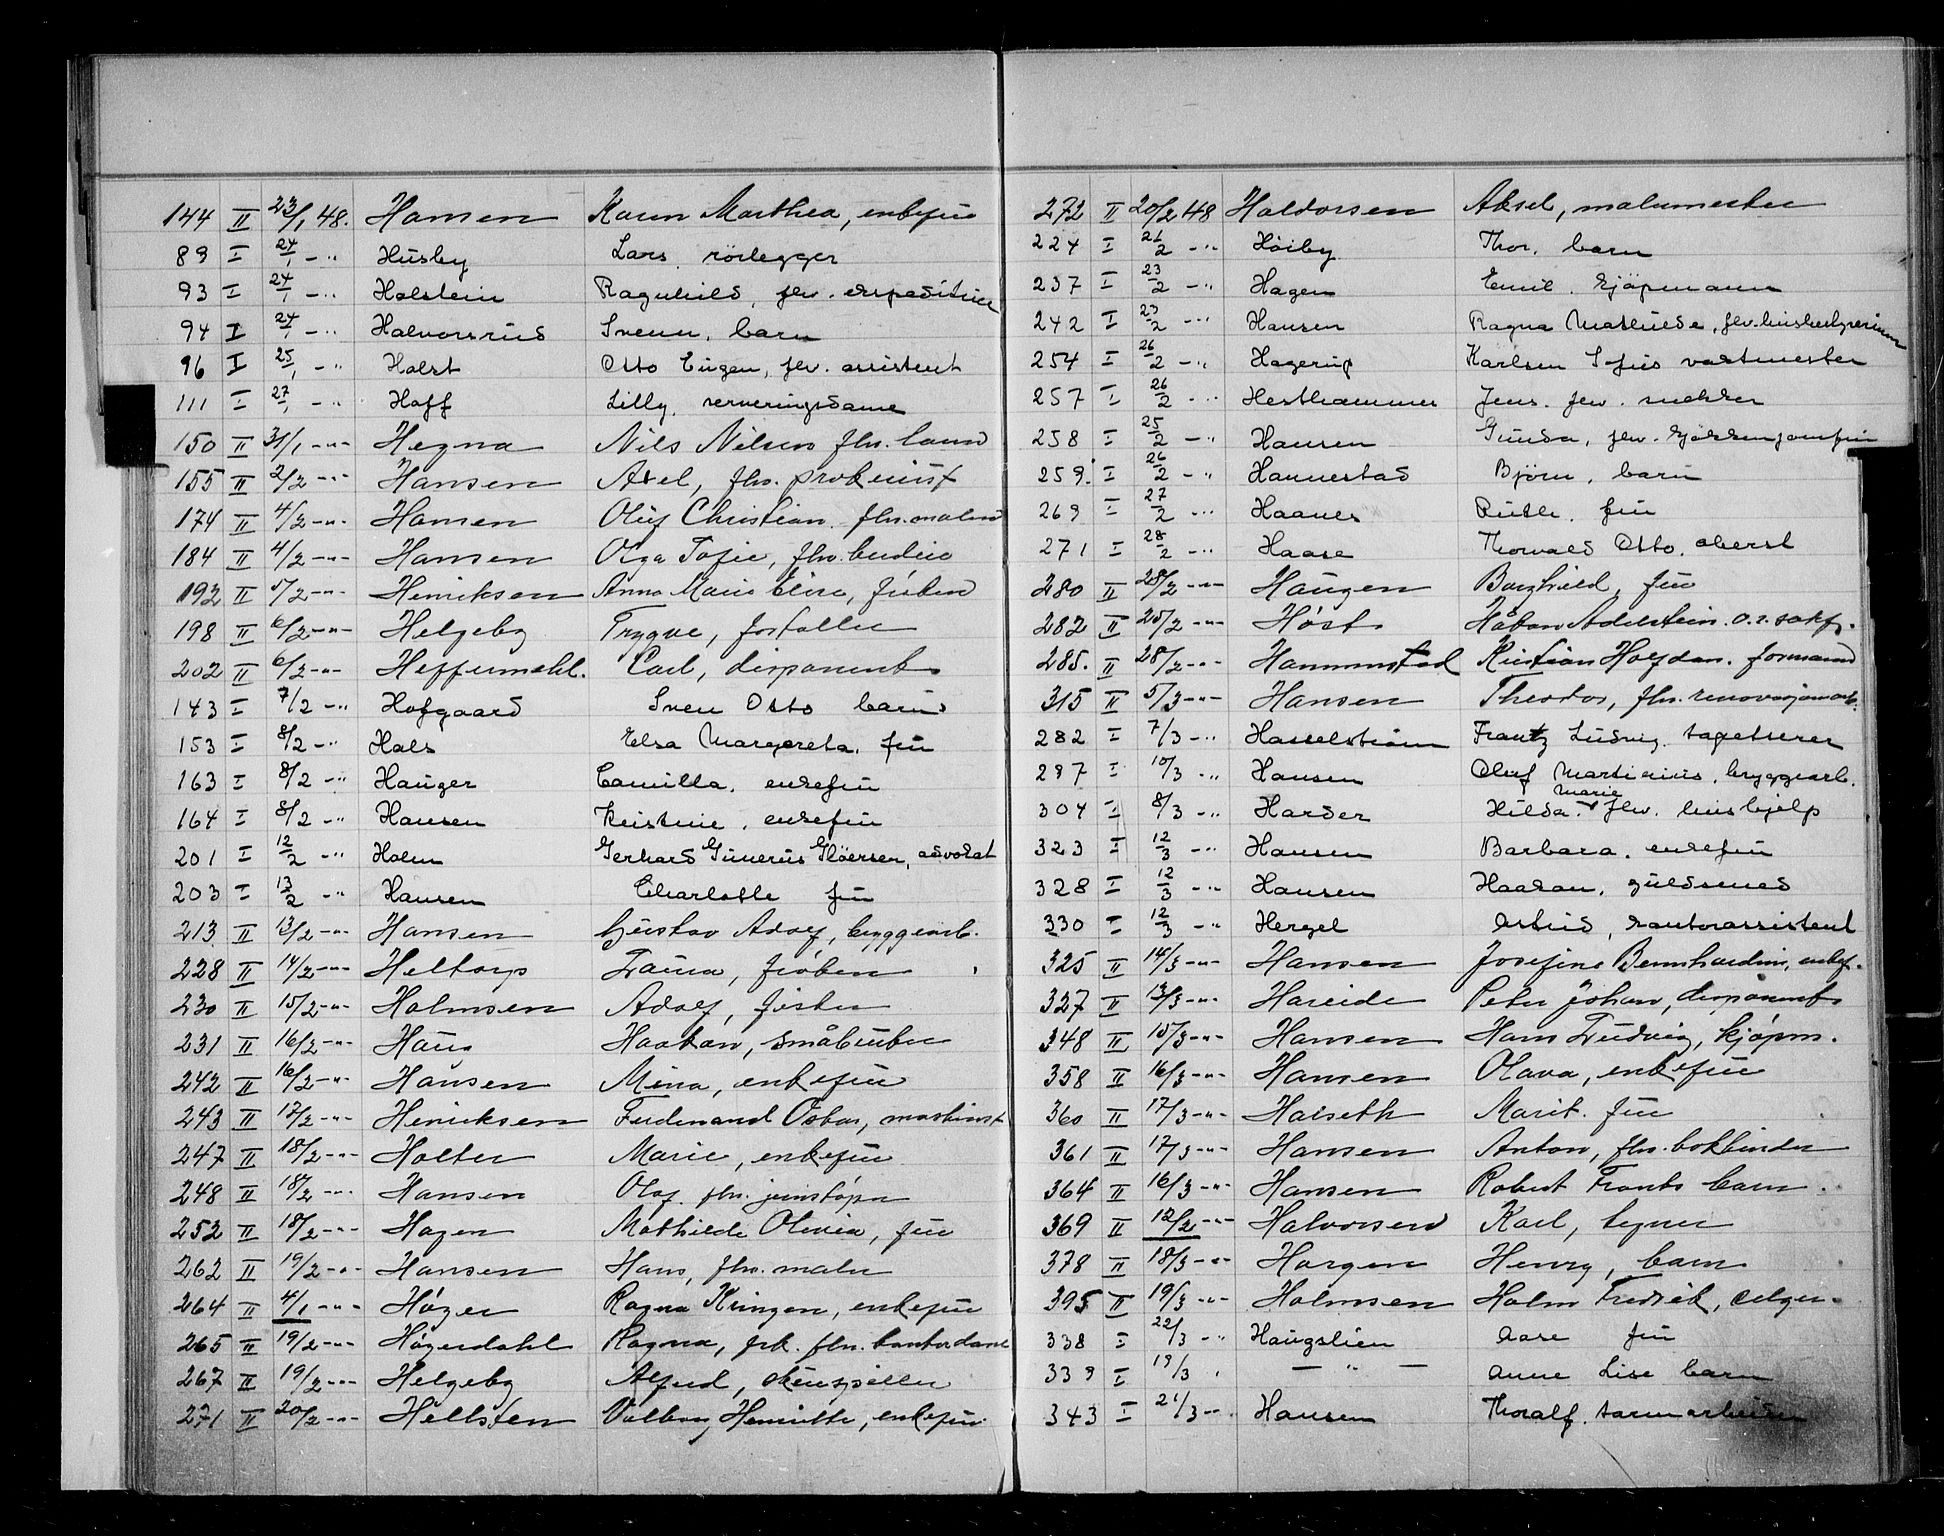 144 II 23/1 48. Hansen Karen Marthea, enkefru
89 I 24/1 -" Husby Lars, rörlegger
93 I 24/1 -" Holstein Ragnhild, fhv. ekspeditrice
94 I 24/1 -" Halvorsrud Svenn, barn
96 I 25/1 -" Holst Otto Eugen, fhv. assistent
111 I 27/1 -" Hoff Lilly, serveringsdame
150 II 31/1 -"- Hegna Nils Nilsen fhv.
155 II 2/2 -"- Hansen Axel, fhv. prokurist
174 II 4/2 -"- Hansen Oluf Christian, fhv. maler
184 II 4/2 -"- Hansen Olga Sofie, fhv. budeie
192 II 5/2 -"- Henriksen Anna Marie Elise, frøken
198 II 6/2 -"- Helgeby Trygve, forfatter
202 II 6/2 -"- Heffermehl. Carl, disponent
143 I 7/2 -" Hofgaard Sven Otto barn
153 I 8/2 -" Hals Elsa Margareta, fru
163 I 8/2 -" Hauger Camilla, enkefru
164 I 8/2 -" Hansen Kristine, enkefru
201 I 12/2 -" Holm Gerhard Gunerius Gløersen, advokat
203 I 13/2 -" Hansen Charlotte fru
213 II 13/2 -"- Hansen Gustav Adolf, bryggearb.
228 II 14/2 -"- Heltorp Laura, frøken
230 II 15/2 -"- Holmsen Adolf, fisker
231 II 16/2 -"- Haug Haakon, småbruker
242 II 16/2 -"- Hansen Mina, enkefru
243 II 17/2 -"- Henriksen Ferdinand Oskar, maskinist
247 II 18/2 -"- Holter Marie, enkefru
248 II 18/2 -"- Hansen Olaf, fhv. jernstøper
252 II 18/2 -"- Hagen Mathilde Olivia, fru
262 II 19/2 -"- Hansen Hans, fhv. maler
264 II 4/1 -"- Høyer Ragna Kringen, enkefru
265 II 19/2 -"- Høyerdahl Ragna, frk. fhv. kontordame
267 II 19/2 -"- Helgeby Alfred, skuespiller
271 II 20/2 -"- Hellsten Valborg Henriette, enkefru
272 II 20/2 48 Haldorsen Aksel, malermester
224 I 21/2 -" Höiby Thor, barn
237 I 23/2 -" Hagen Emil, kjöpmann
242 I 23/2 -" Hansen Ragna Mathilde, fhv. husbestyrerinne
254 I 26/2 -" Hagerup Karlsen Sofus vaktmester
257 I 26/2 -" Hesthammer Jens, fhv. snekker
258 I 25/2 -" Hansen Gunda, fhv. kjøkkenjomfru
259. I 26/2 -" Hannestad Björn, barn
269 I 27/2 -" Haanes Ruth, fru
271 I 28/2 -" Haase Thorvald Otto, oberst
280 II 28/2 -"- Haugen Borghild, fru
282 II 25/2 -"- Høst Håkon Adelstein. o.r. sakf.
285. II 28/2 -"- Hammerstad Kristian Halfdan. formann
315 II 5/3 -"- Hansen Theodor, fhv. renovasjonsarb.
282 I 7/3 -" Hasselström Frantz Ludvig, tapetserer
297 I 10/3 -" Hansen Oluf Martinius, bryggearb.
304 I 8/3 -" Harder Hilda Marie, fhv. hushjelp
323 I 12/3 -" Hansen Barbara, enkefru
328 I 12/3 -" Hansen Haakon, guldsmed
330 I 12/3 -" Hergel Astrid, kontorassistent
325 II 14/3 -"- Hansen Josefine Bernhardine, enkef.
327 II 13/3 -"- Hareide Peter Johan, disponent
348 II 15/3 -"- Hansen Hans Ludvig, kjøpm.
358 II 16/3 -"- Hansen Olava, enkefru
360 II 17/3 -"- Haiseth Marit. fru
361 II 17/3 -"- Hansen Anton, fhv. bokbinder
364 II 16/3 -"- Hansen Robert Frants barn
369 II 12/2 -"- Halvorsen Karl, tegner
378 II 18/3 -"- Horgen Henry, barn
395 II 19/3 -"- Holmsen Holm Fredrik, selger
338 I 22/3 -" Haugslien Aase fru
339 I 19/3 " — " — Anne Lise barn
343 I 21/3 -". Hansen Thoralf,